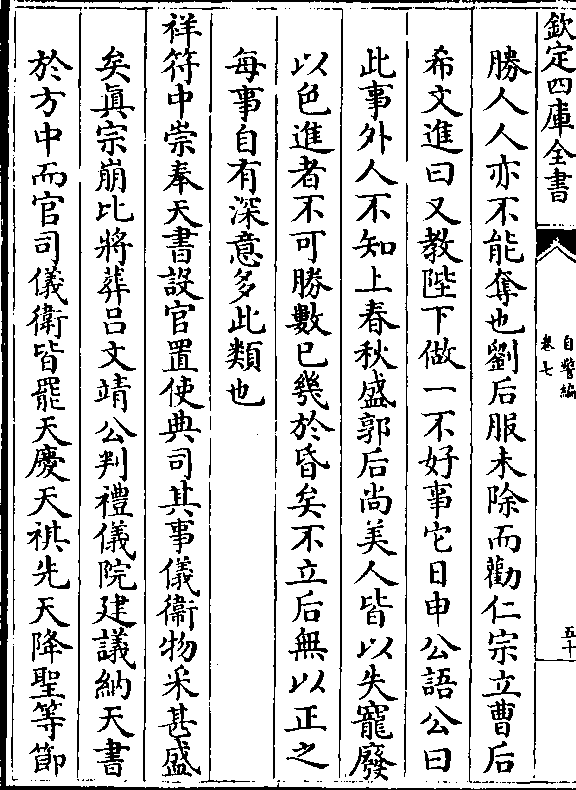 欽定四庫全書
自警編
卷七
五十
勝人人亦不能奪也劉后服未除而勸仁宗立曹后
希文進曰又教陛下做一不好事它日申公語公曰
此事外人不知上春秋盛郭后尚美人皆以失寵廢
以色進者不可勝數已幾於昏矣不立后無以正之
每事自有深意多此類也
祥符中崇奉天書設官置使典司其事儀衞物采甚盛
矣眞宗崩比將葬呂文靖公判禮儀院建議納天書
於方中而官司儀衛皆罷天慶天祺先天降聖等節